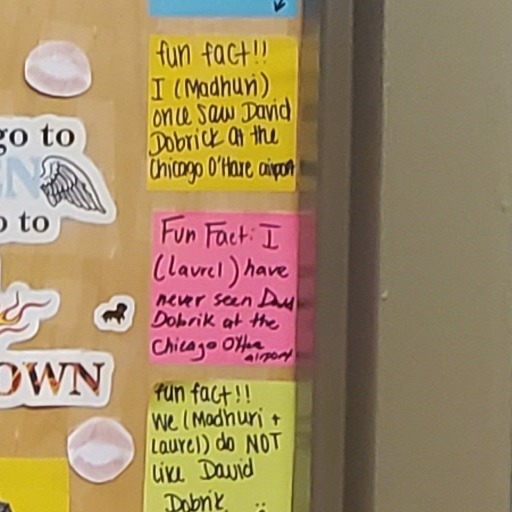 fun fact!!
I (Madhuri)
once saw David
Dobrick at the
Chicago O'Hare airport
go to
EN
to
Fun Fact: I
(Laurel) have
never seen David
Dobrik at the
Chicago O'Hare
airport
OWN
fun fact!!
We (Madhuri +
Laurel) do NOT
like David
Dobrik